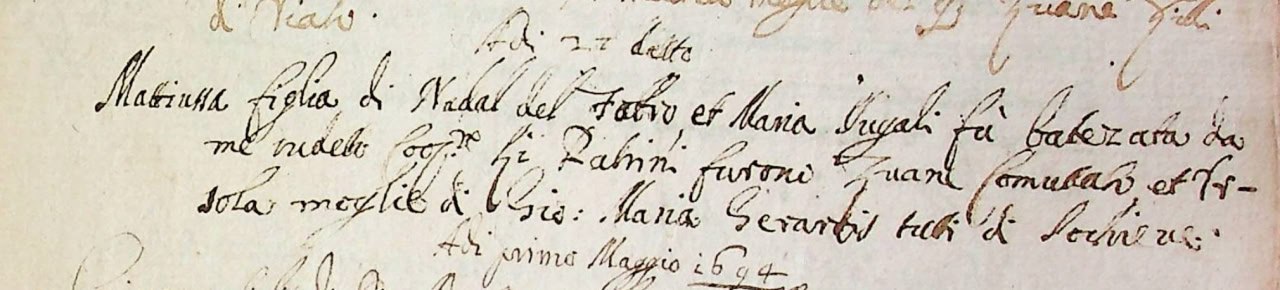 di Viaso.
moglie di Zuane
Adi 27 detto
Mattiussa figlia di Nadal del Fabro, et Maria Jugali fù batezata da
me sudetto li Patrini furono Zuane Comuzzo, et Or-
sola moglie di Gio: Maria Gerardis tutti di Sochieve.
Adi primo Maggio 1694